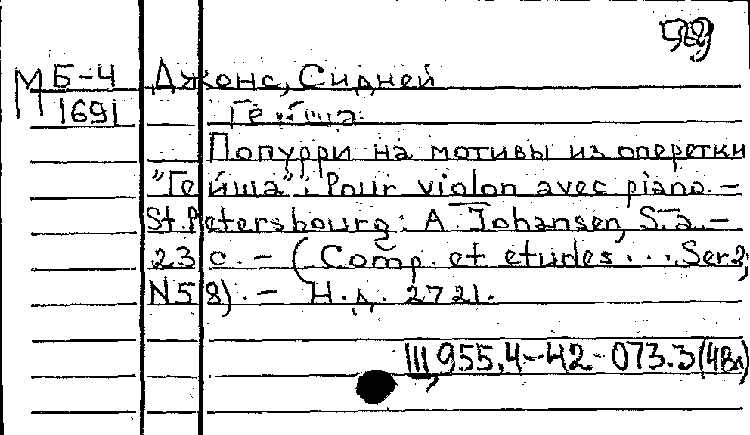 589
М Б-4 Джонс, Сидней
1691 Гейша.
Попурри на мотивы из оперетки
"Гейша". Pour violon avec piano. –
St. Petersbourg: A. Johansen, S.a. –
23 с. – (Comp. et etudes... Ser 2,
N58). – Н.д. 2721.
Щ955.4-42-073.3(4Вл)